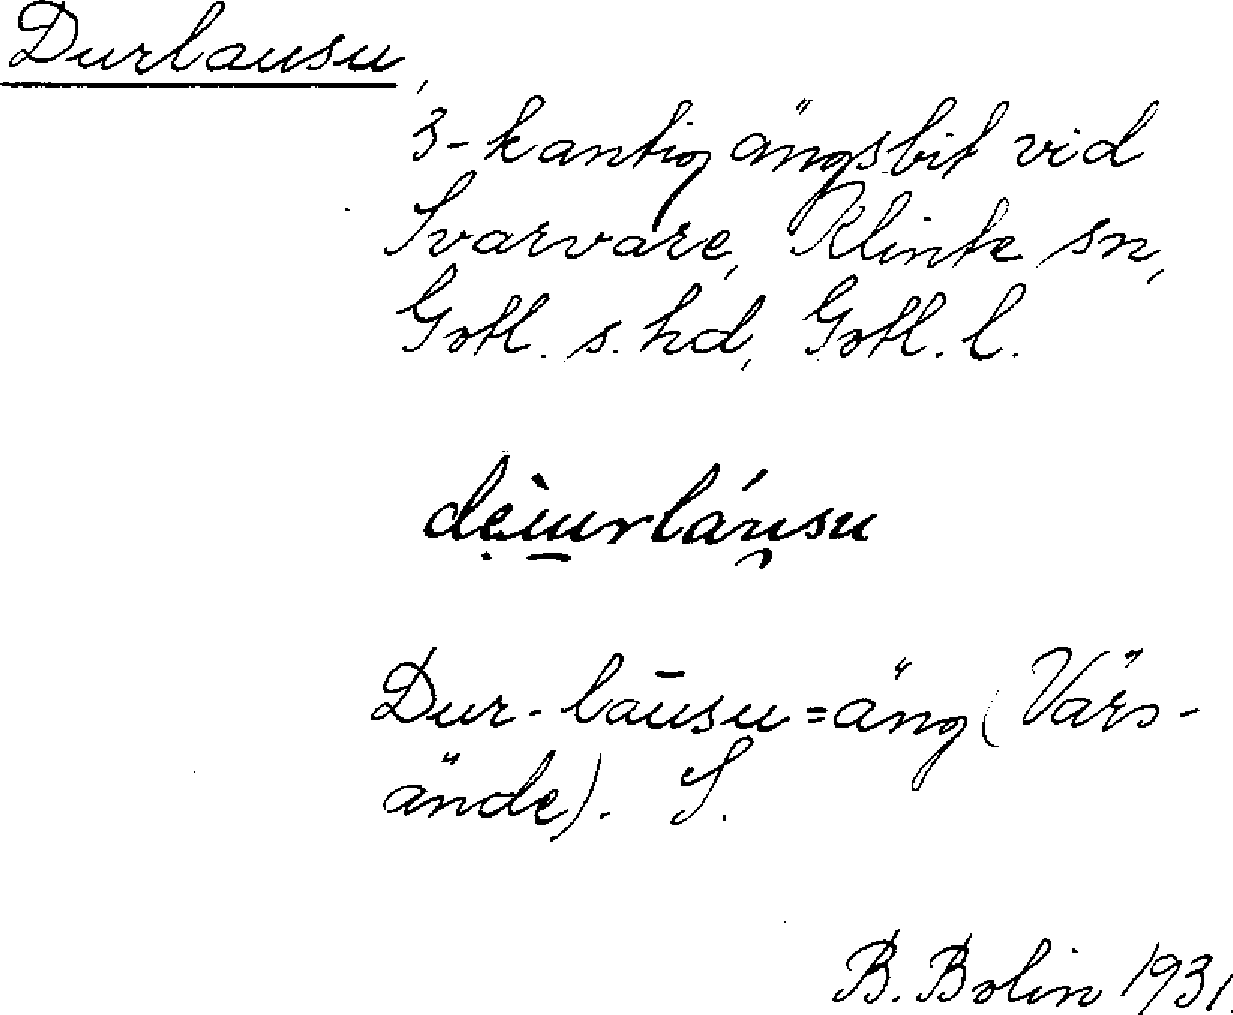 Durlausu,
3-kantig ängsbit vid
Svarvare, Klinte sn,
Gotl. s. hd, Gotl. l.
dẹ̀u̱rláu̯su
Dur-laūsu=äng (Värs-
ände). S.
B. Bolin 1931.